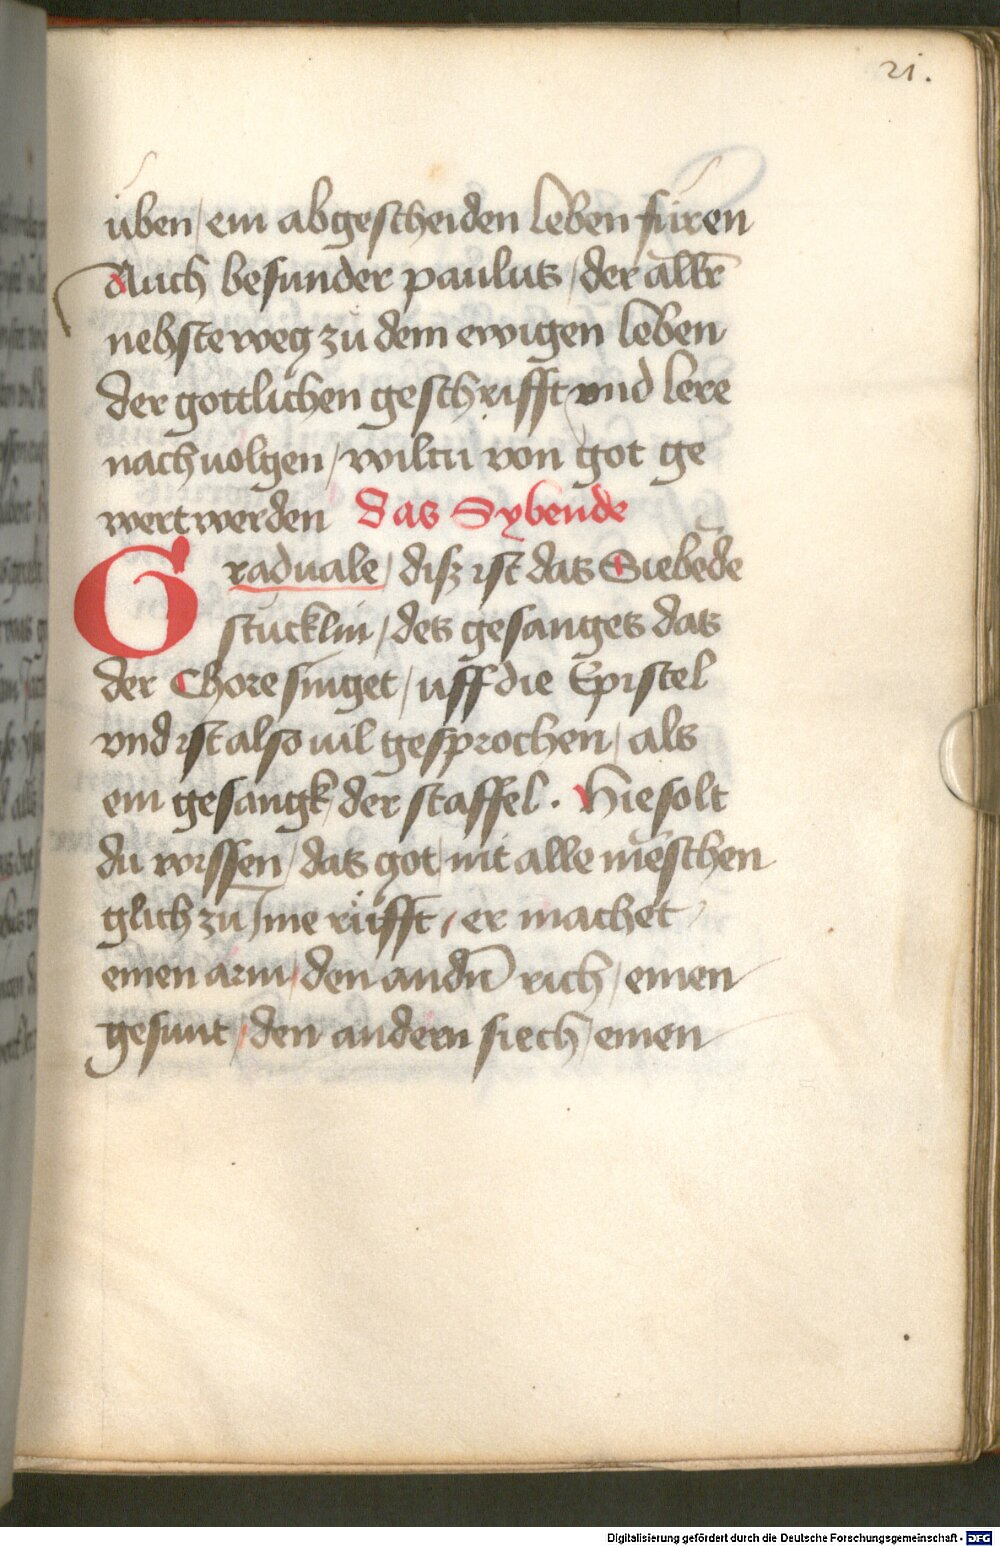 21.
üben / ein abgescheiden leben füren
Auch besunder paulus / der aller
nehste weg zü dem ewigen leben
der gottlichen geschrifft vnd lere
nachuolgen / wiltu von got ge
wert werden das Sybende
Graduale / disz ist das Siebēde
stucklin / des gesanges das
der Chore singet / uff die Epistel
vnd ist also uil gesprochen / als
ein gesangk der staffel . Hie solt
du wissen / das got nit alle mēschen
glich zü Ime rüfft / er machet
einen arm / den andn̄ rich / einen
gesunt / den andern siech / einen
Digitalisierung gefördert durch die Deutsche Forschungsgemeinschaft - DFG